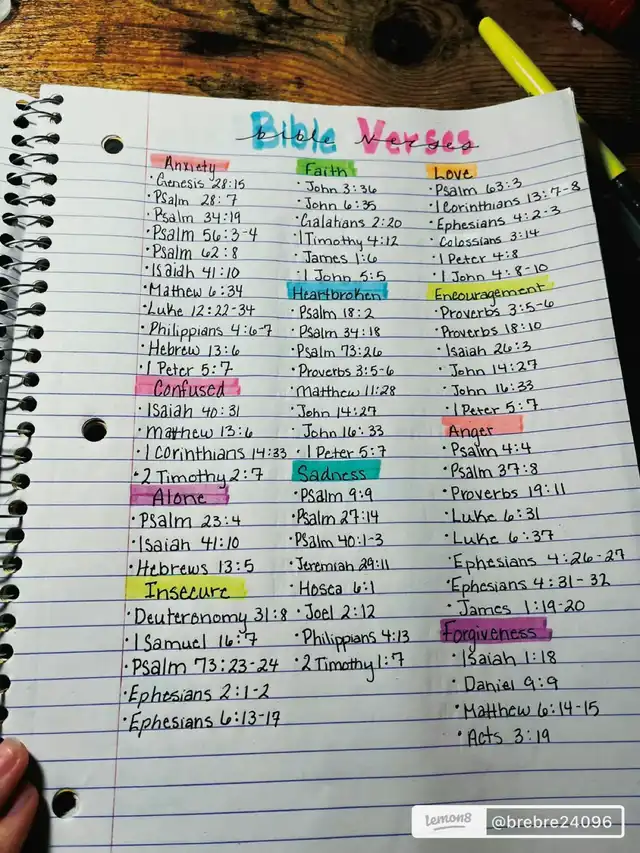 Bible Verses
bible verses
Anxiety
• Genesis 28:15
• Psalm 28:7
• Psalm 34:19
• Psalm 56:3-4
• Psalm 62:8
• Isaiah 41:10
• Mathew 6:34
• Luke 12:22-34
• Philippians 4:6-7
• Hebrew 13:6
• 1 Peter 5:7
Confused
• Isaiah 40:31
• mathew 13:6
• 1 Corinthians 14:33
• 2 Timothy 2:7
Alone
• Psalm 23:4
• Isaiah 41:10
• Hebrews 13:5
Insecure
• Deuteronomy 31:8
• 1 Samuel 16:7
• Psalm 73:23-24
• Ephesians 2:1-2
• Ephesians 6:13-17
Faith
• John 3:36
• John 6:35
• Galatians 2:20
• 1 Timothy 4:12
• James 1:6
• 1 John 5:5
Heartbroken
• Psalm 18:2
• Psalm 34:18
• Psalm 73:26
• Proverbs 3:5-6
• Matthew 11:28
• John 14:27
• John 16:33
• 1 Peter 5:7
Sadness
• Psalm 9:9
• Psalm 27:14
• Psalm 40:1-3
• Jeremiah 29:11
• Hosea 6:1
• Joel 2:12
• Philippians 4:13
• 2 Timothy 1:7
Love
• Psalm 63:3
• 1 Corinthians 13:7-8
• Ephesians 4:2-3
• Colossians 3:14
• 1 Peter 4:8
• 1 John 4:8-10
Encouragement
• Proverbs 3:5-6
• Proverbs 18:10
• Isaiah 26:3
• John 14:27
• John 16:33
• 1 Peter 5:7
Anger
• Psalm 4:4
• Psalm 37:8
• Proverbs 19:11
• Luke 6:31
• Luke 6:37
• Ephesians 4:26-27
• Ephesians 4:31-32
• James 1:19-20
Forgiveness
• Isaiah 1:18
• Daniel 9:9
• Matthew 6:14-15
• Acts 3:19
lemon8 @brebre24096